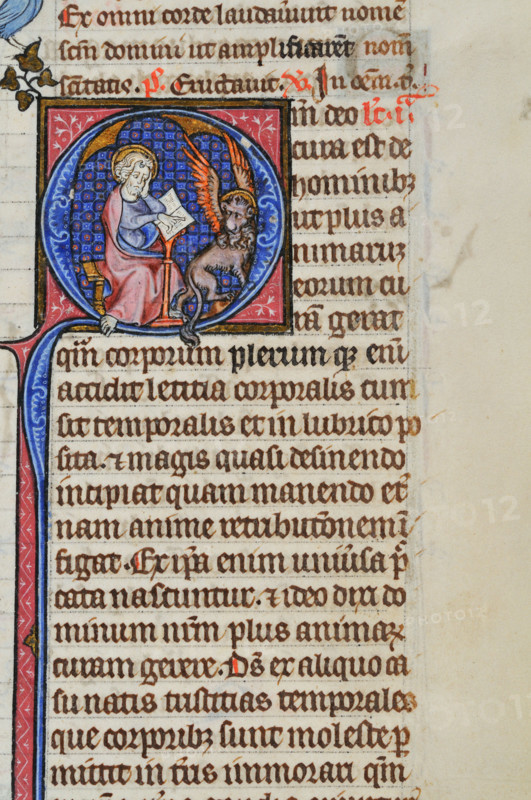 Ex omni corde laudauiunt nomē
scm̄ domini ut amplificarēt nom̄
sc̄itatis. p̄s. Eructauit. In oēm. t̄.
m̄ deo
cura est de
hominibꝫ
ut plus a
nimaruꝫ
eorum cu
rā gerat
qm̄ corporum plerum qꝫ eni
accidit letitia corporalis cum
sit temporalis et in lubrico po
sita. ⁊ magis quasi desinendo
incipiat quam manendo et
nam anime retributionem ī
figat. Ex ip̄a enim uniu̇sa p̄
cata nascuntur. ⁊ ideo dixi do
minum nr̄m plus animaꝝ
curam gerere. Ds̄ ex aliquo ca
su natis tristitias temporales
que corporibꝫ sunt moleste ꝑ
mittit in suis immorari qm̄